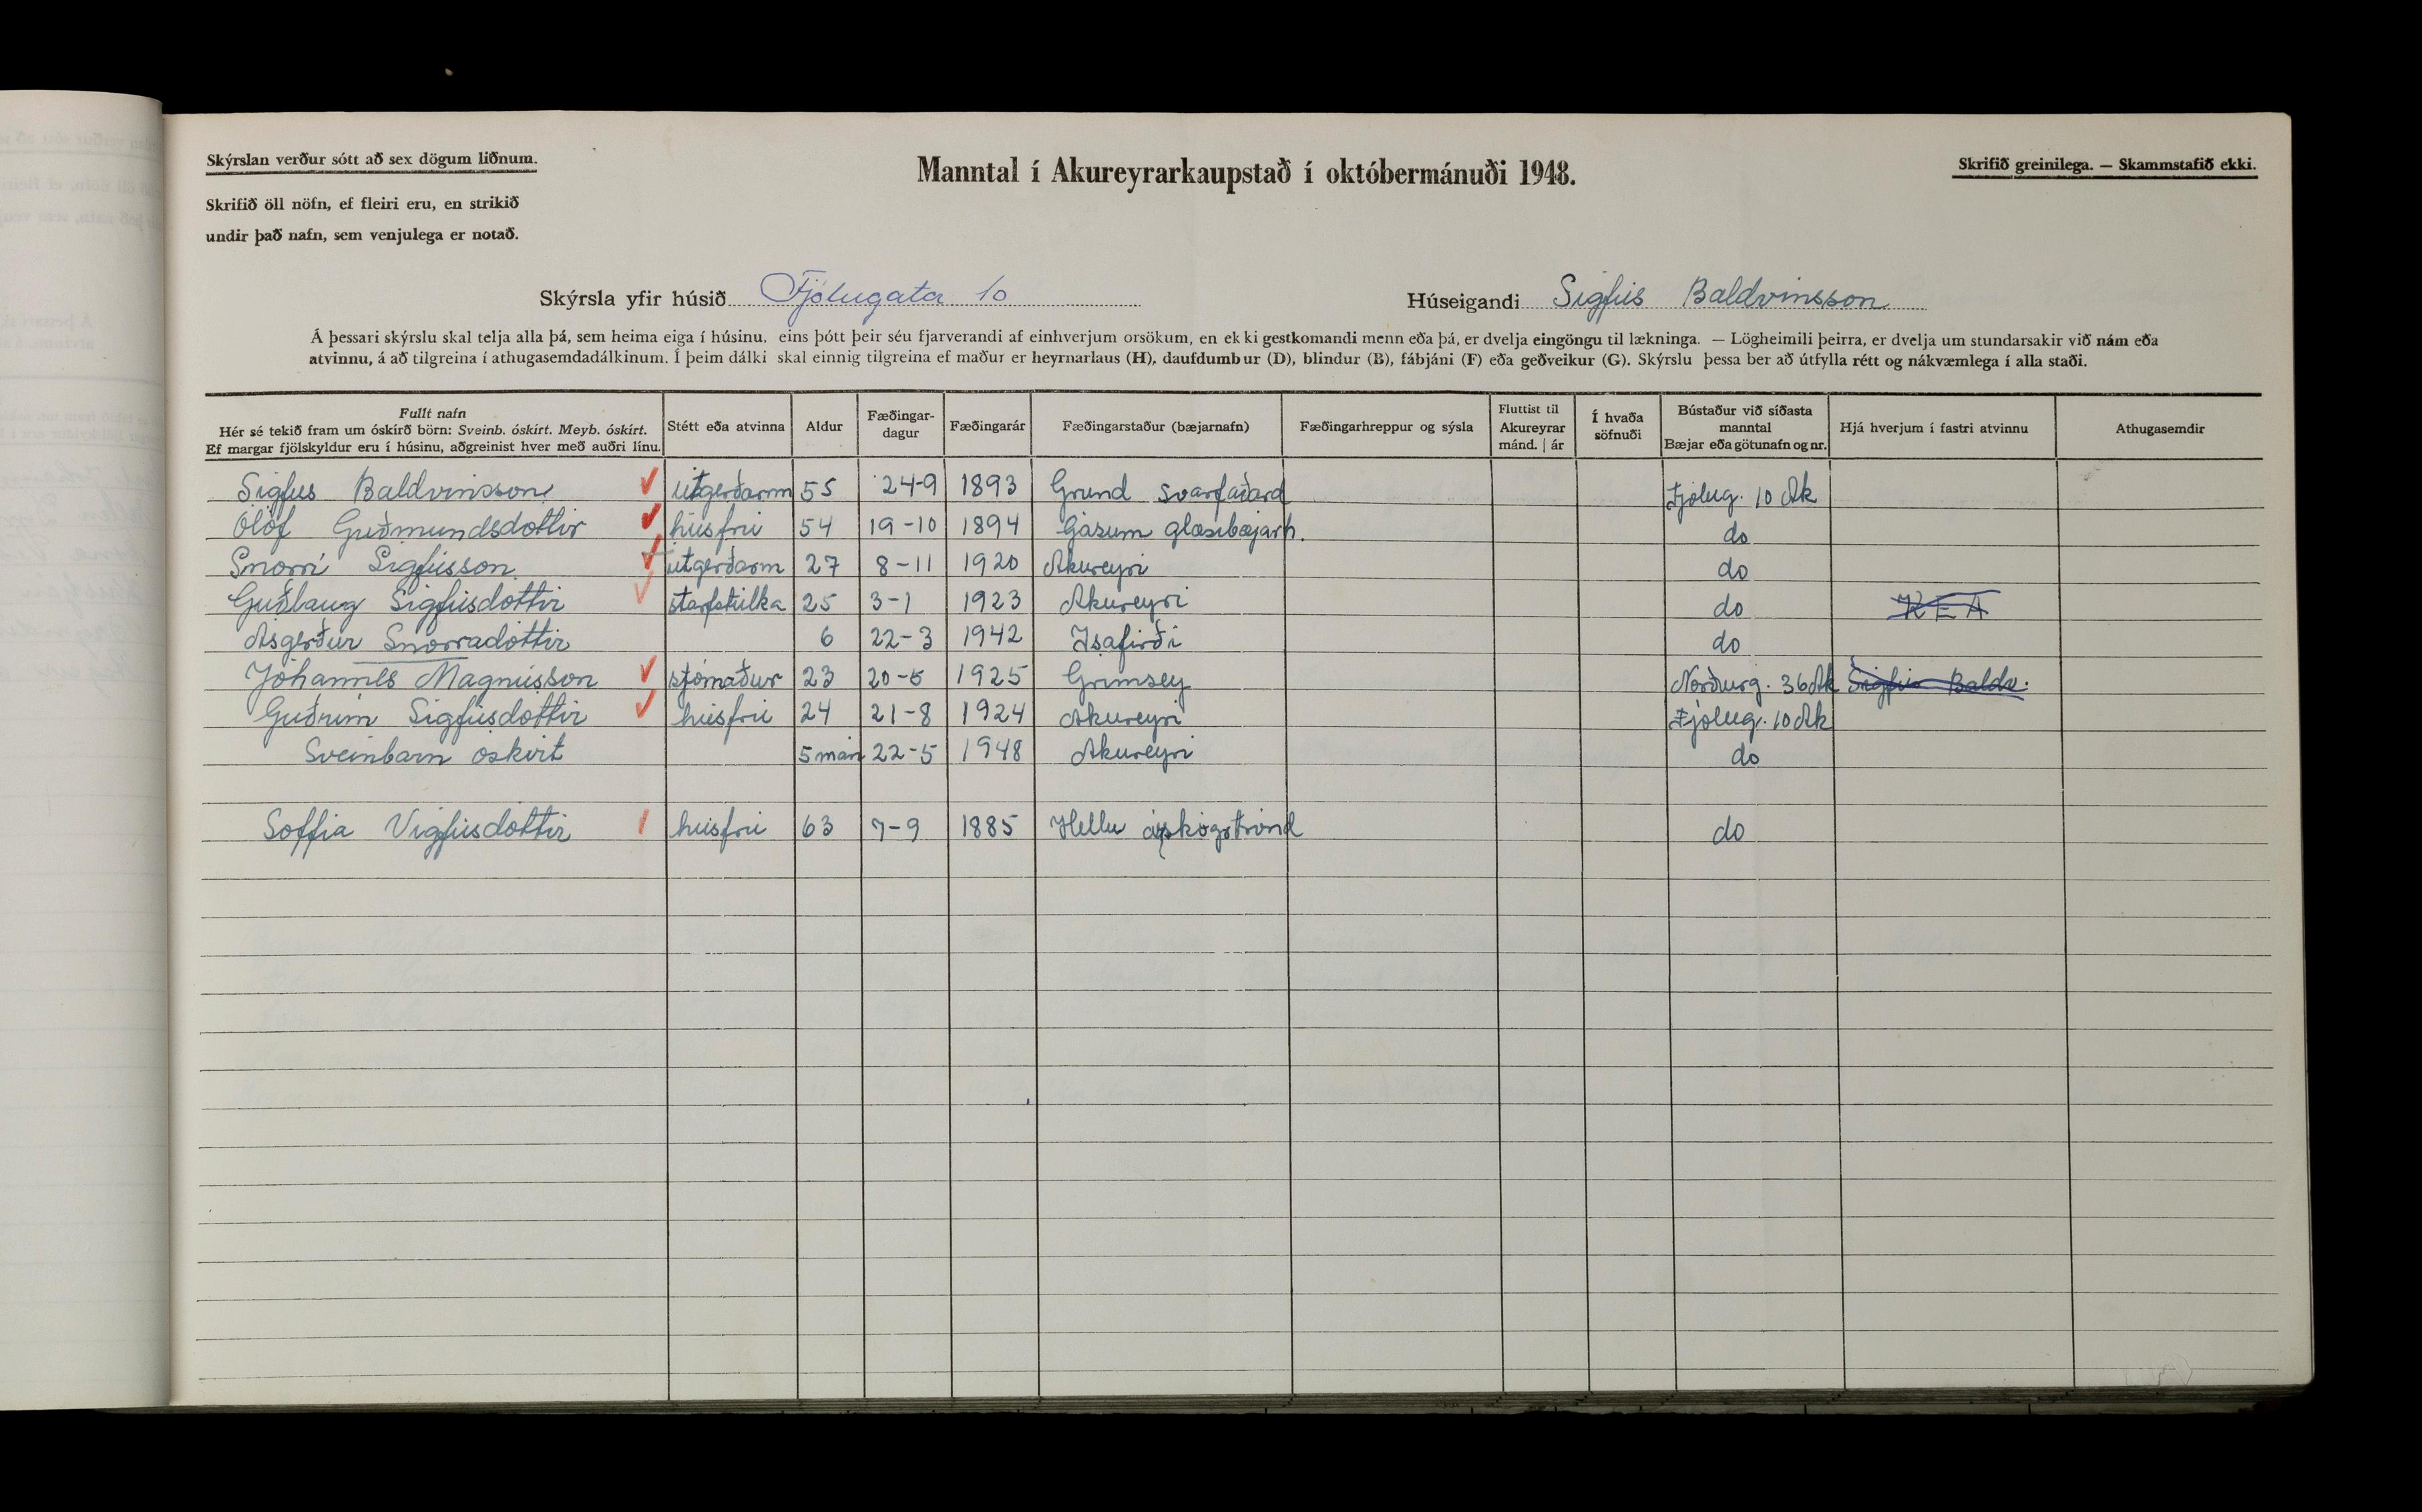 Skýrslan verður sótt að sex dögum liðnum.
Skrifið öll nöfn, ef fleiri eru, en strikið
undir það nafn, sem venjulega er notað.
Manntal í Akureyrarkaupstað í októbermánuði 1948.
Skrifið greinilega. — Skammstafið ekki.
Skýrsla yfir húsið Fjólugata 10 Húseigandi Sigfús Baldvinsson
Á þessari skýrslu skal telja alla þá, sem heima eiga í húsinu, eins þótt þeir séu fjarverandi af einhverjum orsökum, en ekki gestkomandi menn eða þá, er dvelja eingöngu til lækninga. — Lögheimili þeirra, er dvelja um stundarsakir við nám eða
atvinnu, á að tilgreina í athugasemdadálkinum. Í þeim dálki skal einnig tilgreina ef maður er heyrnarlaus (H), daufdumbur (D), blindur (B), fábjáni (F) eða geðveikur (G). Skýrslu þessa ber að útfylla rétt og nákvæmlega í alla staði.
Fullt nafn
Hér sé tekið fram um óskírð börn: Sveinb. óskírt. Meyb. óskírt.
Ef margar fjölskyldur eru í húsinu, aðgreinist hver með auðri línu.
Stétt eða atvinna
Aldur
Fæðingar-
dagur
Fæðingarár
Fæðingarstaður (bæjarnafn)
Fæðingarhreppur og sýsla
Fluttist til
Akureyrar
mánd. | ár
Í hvaða
söfnuði
Bústaður við síðasta
manntal
Bæjar eða götunafn og nr.
Hjá hverjum í fastri atvinnu
Athugasemdir
Sigfus Baldvinsson útgerðarm 55 24-9 1893 Grund Svarfaðard Fjólug. 10 Ak
Ólöf Guðmundsdottir húsfrú 54 19-10 1894 Gásum glæsibæjarh. do
Snorri Sigfússon útgerðarm 27 8-11 1920 Akureyri do
Guðlaug Sigfúsdottir starfstúlka 25 3-1 1923 Akureyri do KEA
Asgerður Snorradóttir 6 22-3 1942 Isafirði do
Jóhannes Magnússon sjómaður 23 20-5 1925 Grimsey Norðurg. 36 Ak Sigfús Baldv.
Guðrún Sigfúsdottir húsfrú 24 21-8 1924 Akureyri Fjólug. 10 Ak
Sveinbarn óskirt 5 mán 22-5 1948 Akureyri do
Soffia Vigfúsdottir húsfrú 63 7-9 1885 Hellu árskógströnd do